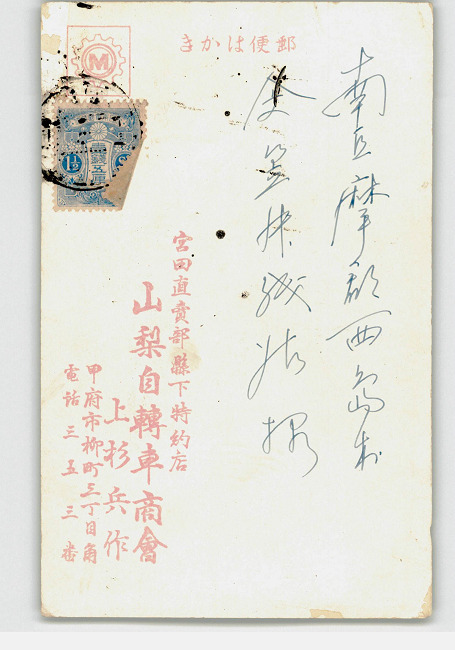 郵便はかき
M
1½
南巨摩郡西島村
宮田直賣部縣下特約店
山梨自轉車商會
上杉兵作
甲府市柳町三丁目角
電話三五三番